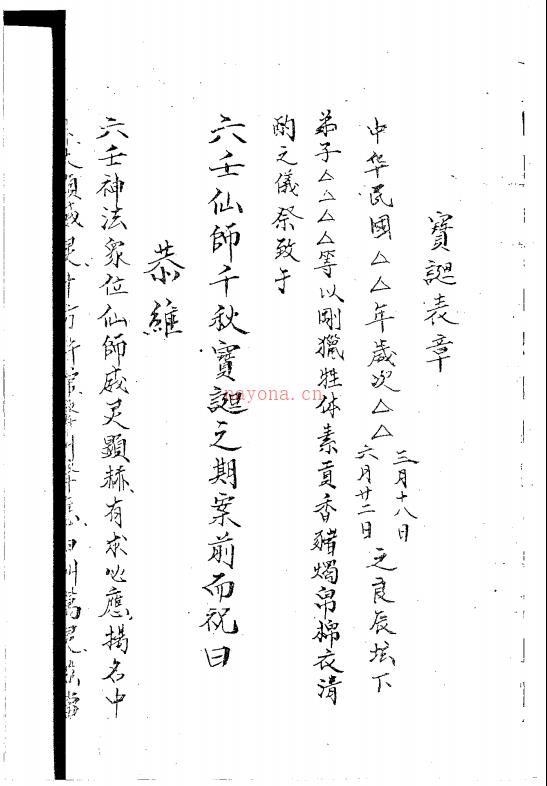 寶誕表章
中华民國△△年歲次△△三月十八日六月廿二日之良辰坛下
弟子△△△△等以剛獵牲体素貢香豬燭帛棉衣清
酌之儀祭致于
六壬仙師千秋寶誕之期案前而祝曰
恭維
六壬神法眾位仙師威灵顯赫有求必應揚名中
大顯威灵
nayona.cn